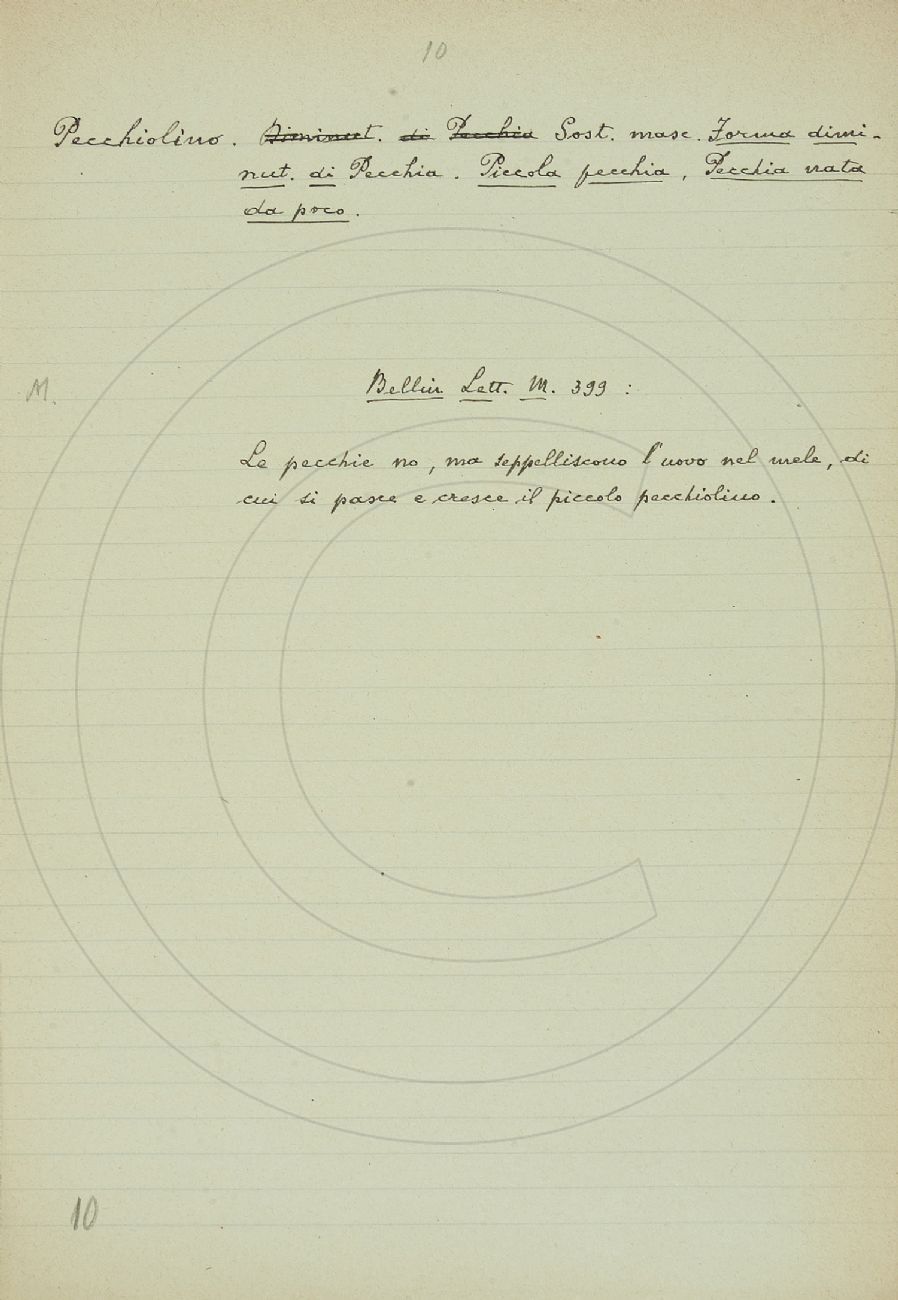 10
Pecchiolino. Diminut. di Pecchia Sost. masc. Forma dimi-
nut. di Pecchia. Piccola pecchia, Pecchia nata
da poco.
M. Bellin. Lett. M. 399 :
Le pecchie no, ma seppelliscono l'uovo nel mele, di
cui si pasce e cresce il piccolo pecchiolino.
10